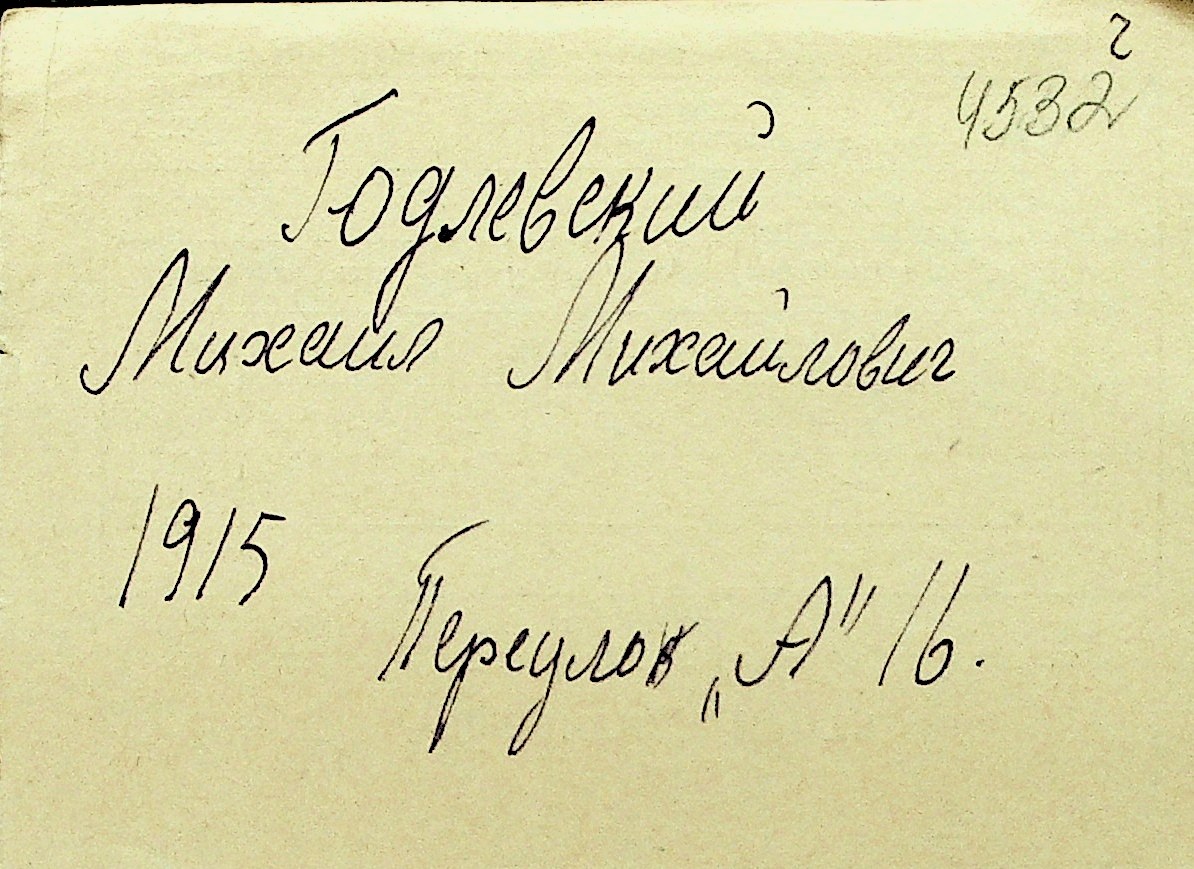 2
4532
Годлевский
Михаил Михайлович
1915
Переулок „А" 16.